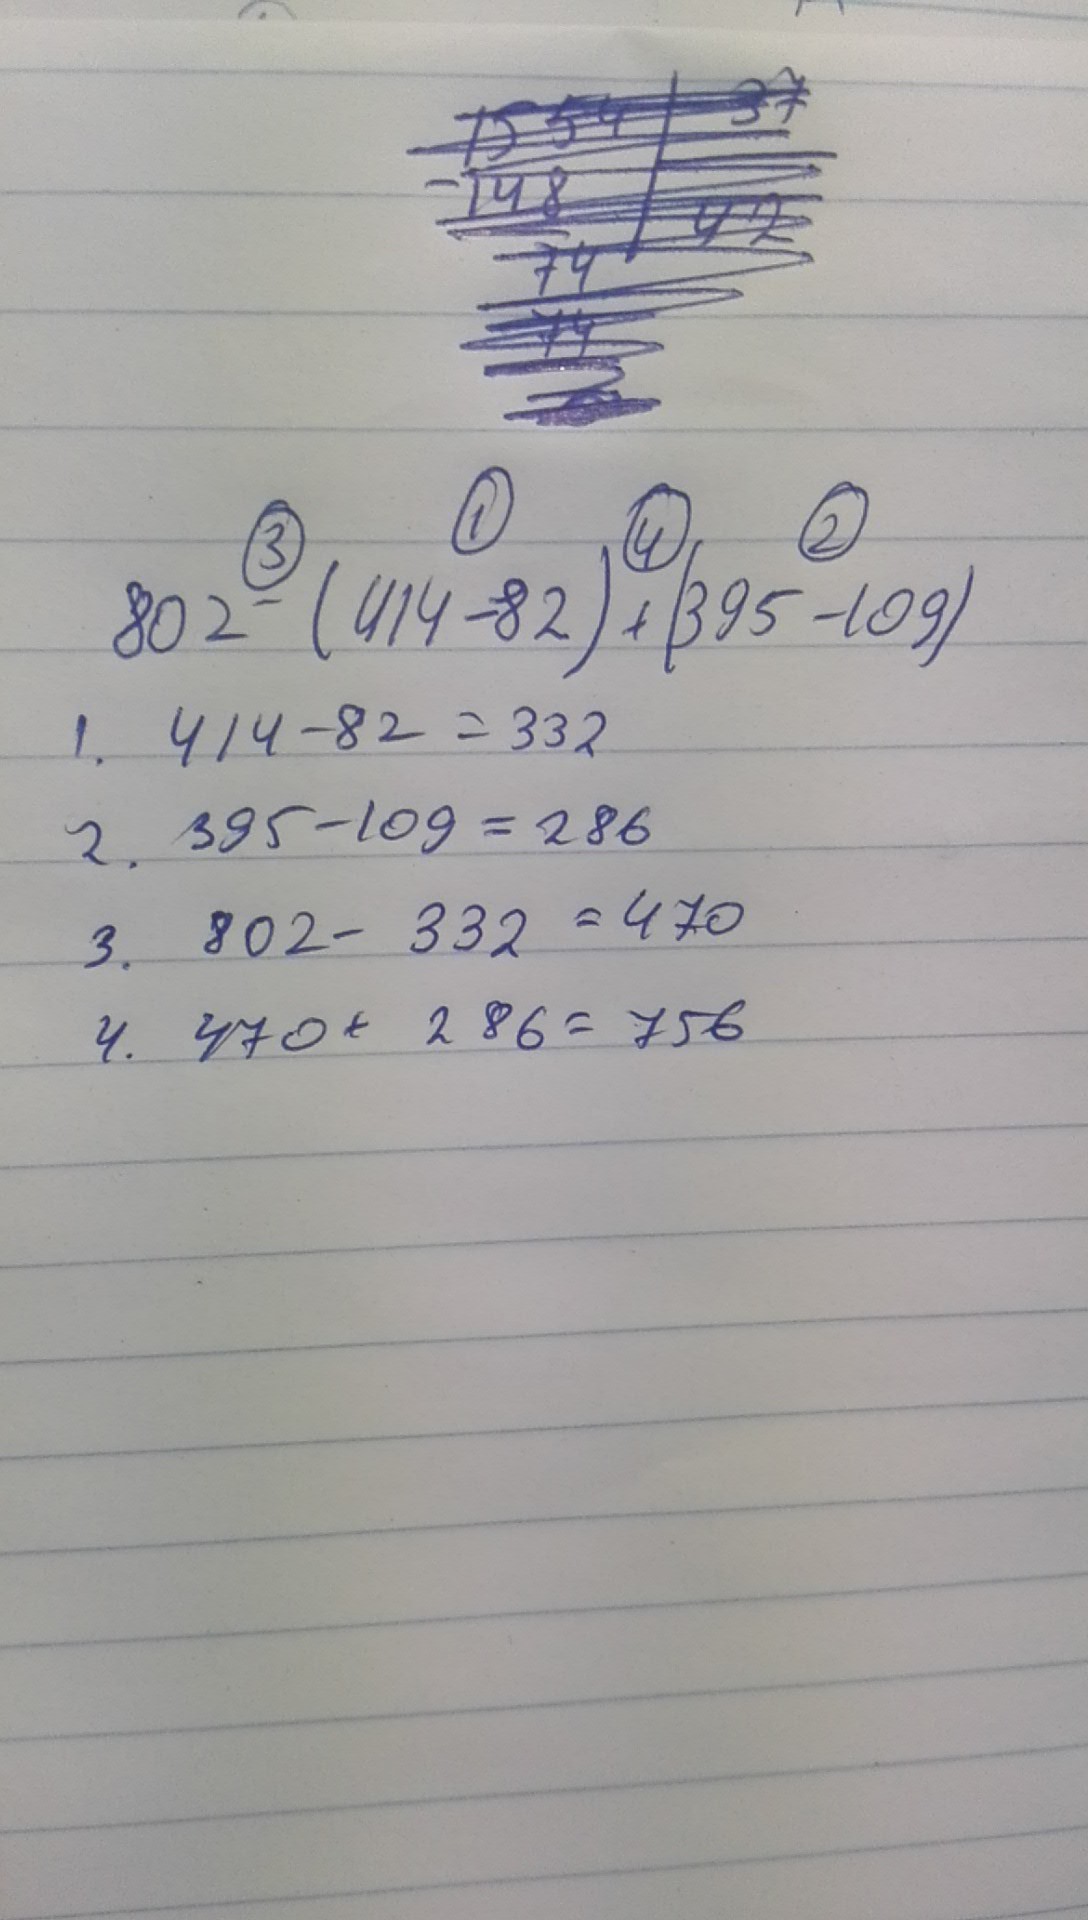 1554 37
-148 42
74
74
③ ① ④ ②
802 - (414-82) + (395-109)
1. 414-82 = 332
2. 395-109 = 286
3. 802- 332 = 470
4. 470+ 286 = 756